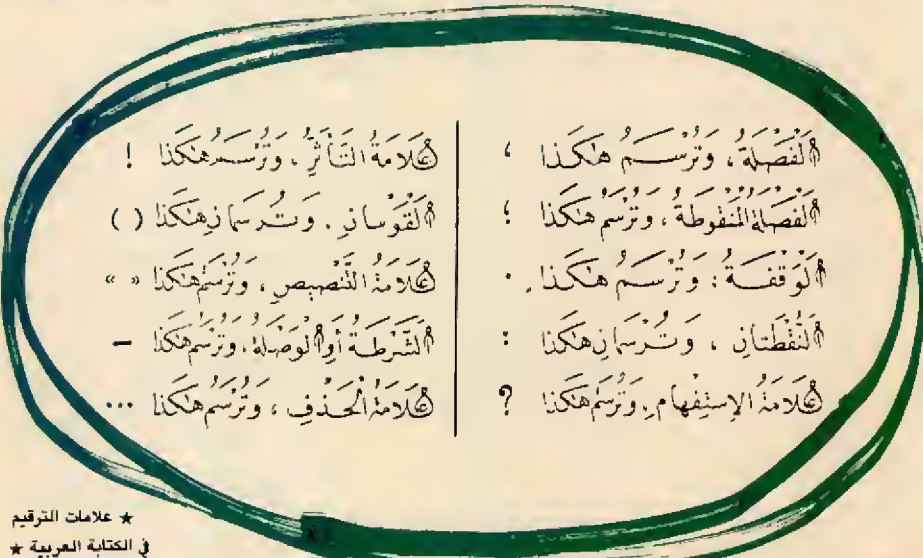 الْفَصْلَةُ، وَتُرْسَمُ هٰكَذَا ،
الْفَصْلَةُ الْمَنْقُوطَةُ، وَتُرْسَمُ هٰكَذَا ؛
الْوَقْفَةُ: وَتُرْسَمُ هٰكَذَا .
النُّقْطَتَانِ، وَتُرْسَمَانِ هٰكَذَا :
عَلَامَةُ الِاسْتِفْهَامِ، وَتُرْسَمُ هٰكَذَا ?
عَلَامَةُ التَّأَثُّرِ، وَتُرْسَمُ هٰكَذَا !
الْقَوْسَانِ. وَتُرْسَمَانِ هٰكَذَا ( )
عَلَامَةُ التَّنْصِيصِ، وَتُرْسَمُ هٰكَذَا « »
الشَّرْطَةُ أَوِ الْوَصْلَةُ، وَتُرْسَمُ هٰكَذَا –
عَلَامَةُ الْحَذْفِ، وَتُرْسَمُ هٰكَذَا ...
★ علامات الترقيم
في الكتابة العربية ★